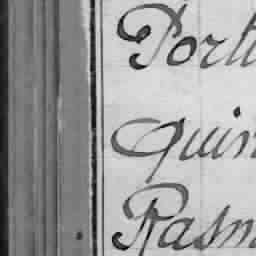 Portu
Quin
Rasm